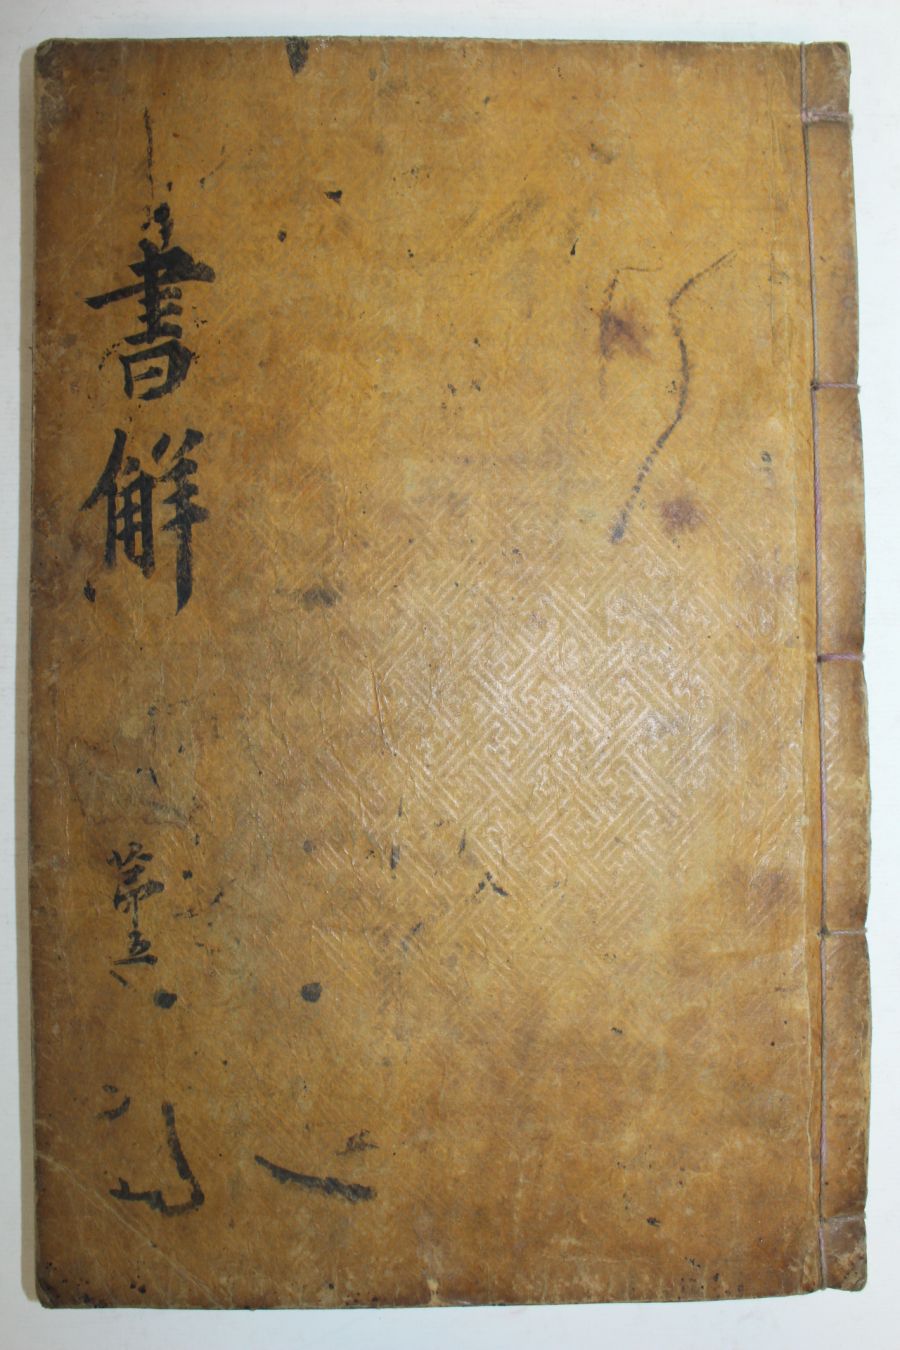 書解
第五